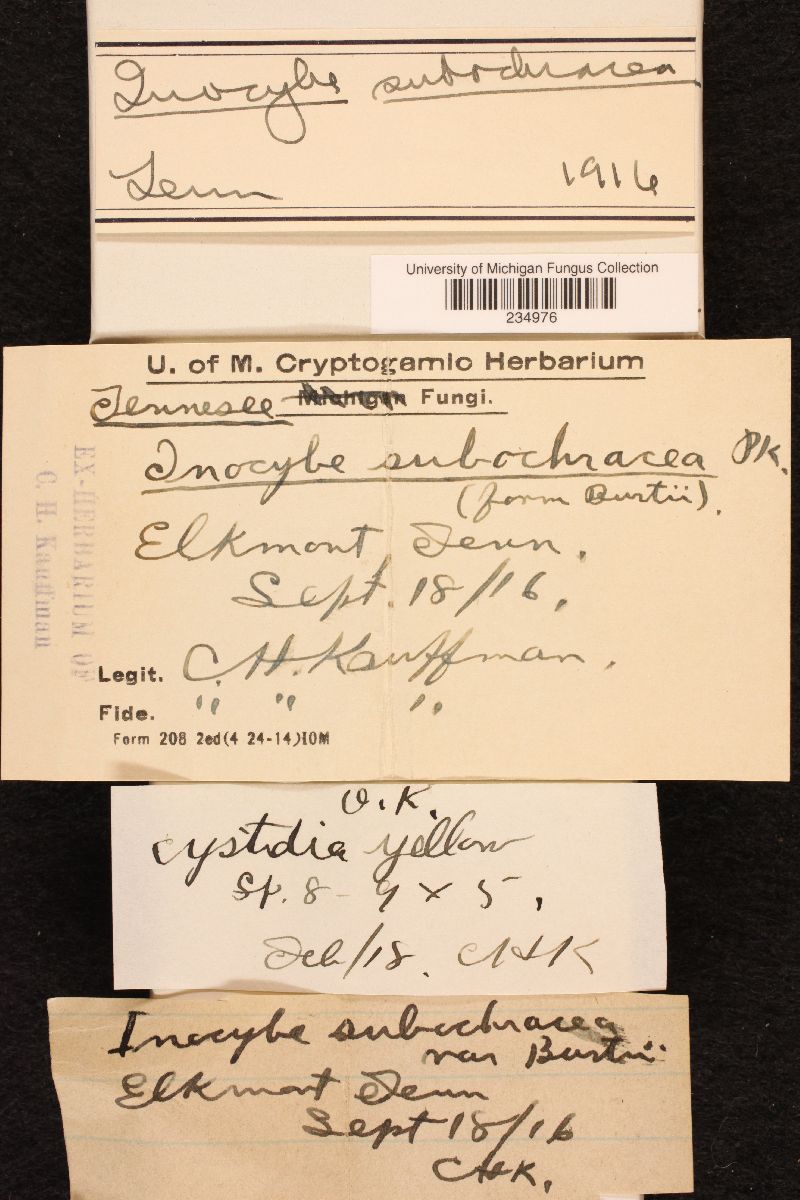 Inocybe subochracea
Tenn 1916
University of Michigan Fungus Collection
234976
U. of M. Cryptogamic Herbarium
Tennesee Michigan Fungi.
Inocybe subochracea Pk.
(form Burtii).
Elkmont, Tenn.
Sept 18/16.
Legit. C. H. Kauffman.
Fide. " " "
Form 208 2ed(4 24-14)10M
EX-HERBARIUM OF
C. H. Kauffman
O.K.
cystidia yellow
Sp. 8-9 x 5,
Feb/18. CHK
Inocybe subochracea
var Burtii
Elkmont Tenn
Sept 18/16
CHK.